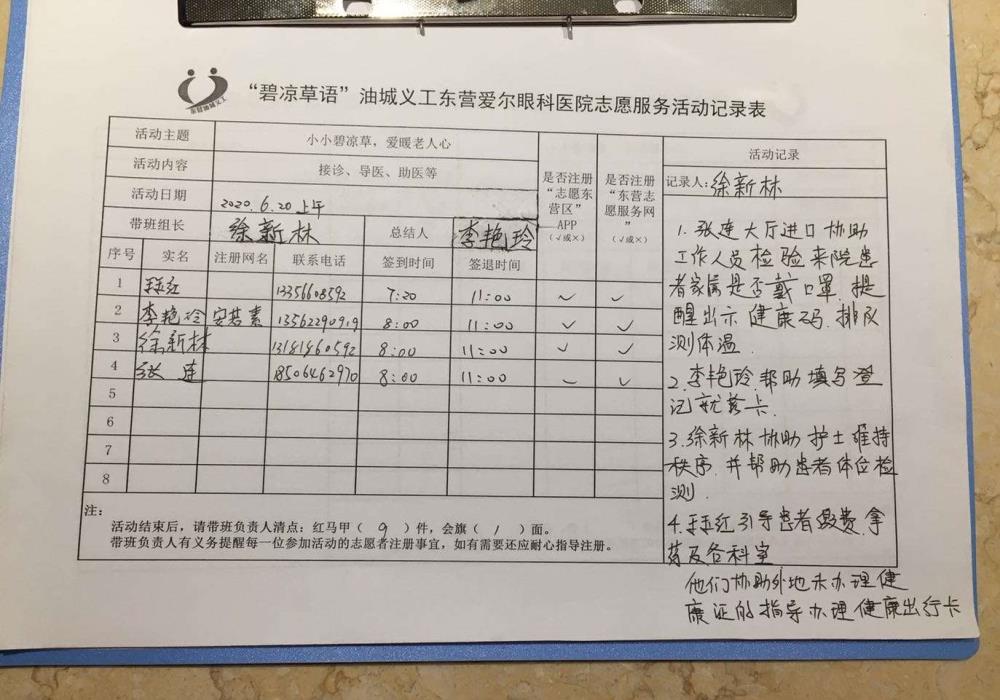 “碧凉草语”油城义工东营爱尔眼科医院志愿服务活动记录表
活动主题 小小碧凉草，爱暖老人心
活动内容 接诊、导医、助医等
活动日期 2020.6.20上午
带班组长 徐新林 总结人 李艳玲
是否注册“志愿东营区”APP（√或×）
是否注册“东营志愿服务网”（√或×）
序号 实名 注册网名 联系电话 签到时间 签退时间
1 红 13356608592 7:20 11:00 ✓ ✓
2 李艳玲 安若素 13562290919 8:00 11:00 ✓ ✓
3 徐新林 13181860592 8:00 11:00 ✓ ✓
4 张连 18506462970 8:00 11:00 ✓ ✓
5
6
7
8
注：
活动结束后，请带班负责人清点：红马甲（9）件，会旗（1）面。
带班负责人有义务提醒每一位参加活动的志愿者注册事宜，如有需要还应耐心指导注册。
活动记录
记录人：徐新林
1.张连大厅进口协助
工作人员检验来院患
者家属是否戴口罩.提
醒出示健康码.排队
测体温.
2.李艳玲.帮助填写登
记就诊卡.
3.徐新林协助护士维持
秩序.并帮助患者体位检
测.
4.红引导患者缴费.拿
药及各科室
他们协助外地未办理健
康证的指导办理健康出行卡